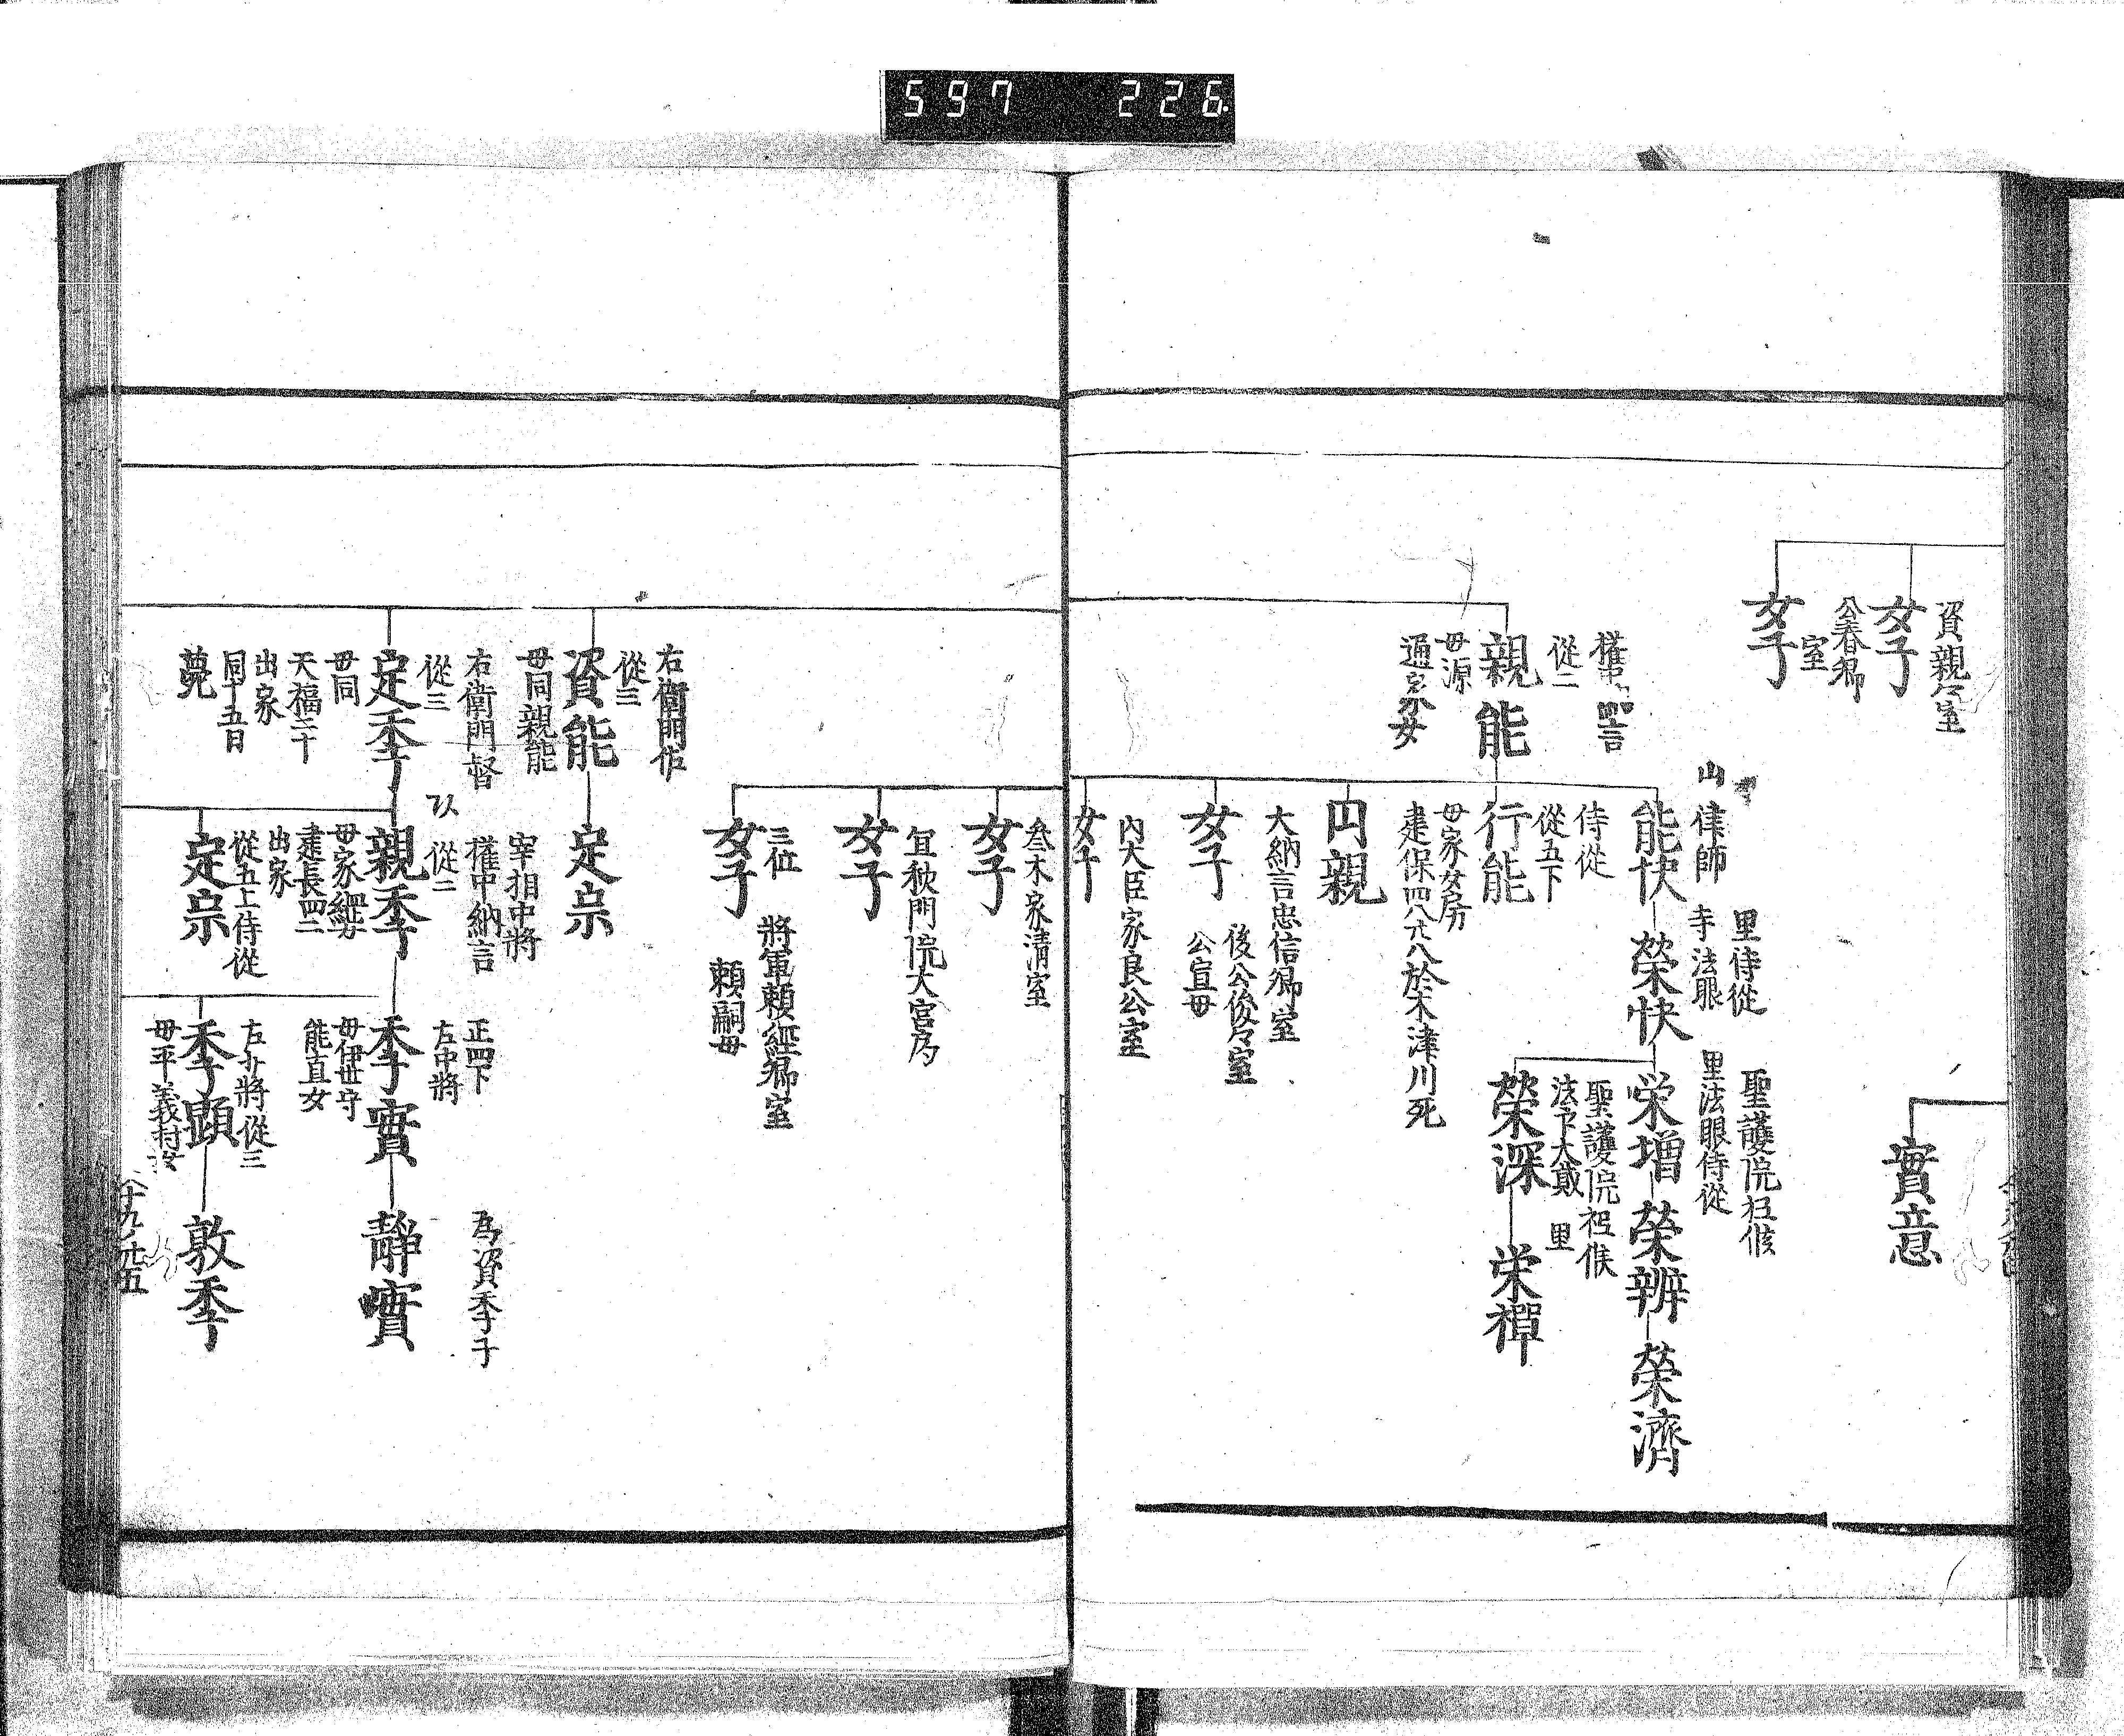 597 226
資親々室
女子
公春卿
室
女子
實意
權中納言
從二
親能
母源
通家女
山 律師
能快
里侍從
寺法眼
榮快
聖護院祗候
里法眼侍從
栄増
榮辨
榮濟
聖護院祗候
法下大貳 里
榮深
栄禪
侍從
從五下
行能
母家女房
建保四八廿八於木津川死
円親
大納言忠信卿室
後公俊々室
公宣母
女子
內大臣家良公室
女子
叅木家清室
女子
宜秋門院大宮局
女子
三位
將軍賴經卿室
賴嗣母
女子
右衛門佐
從三
資能
母同親能
定宗
右衛門督
從三
定季
母同
天福二十
出家
同十五日
薨
宰相中將
權中納言
從二
親季
母家經女
建長四二
出家
從五上侍從
定宗
正四下
左中將
季實
母伊世守
能直女
為資季子
靜實
左少將從三
季顕
母平義村女
敦季
十九ノ卅五